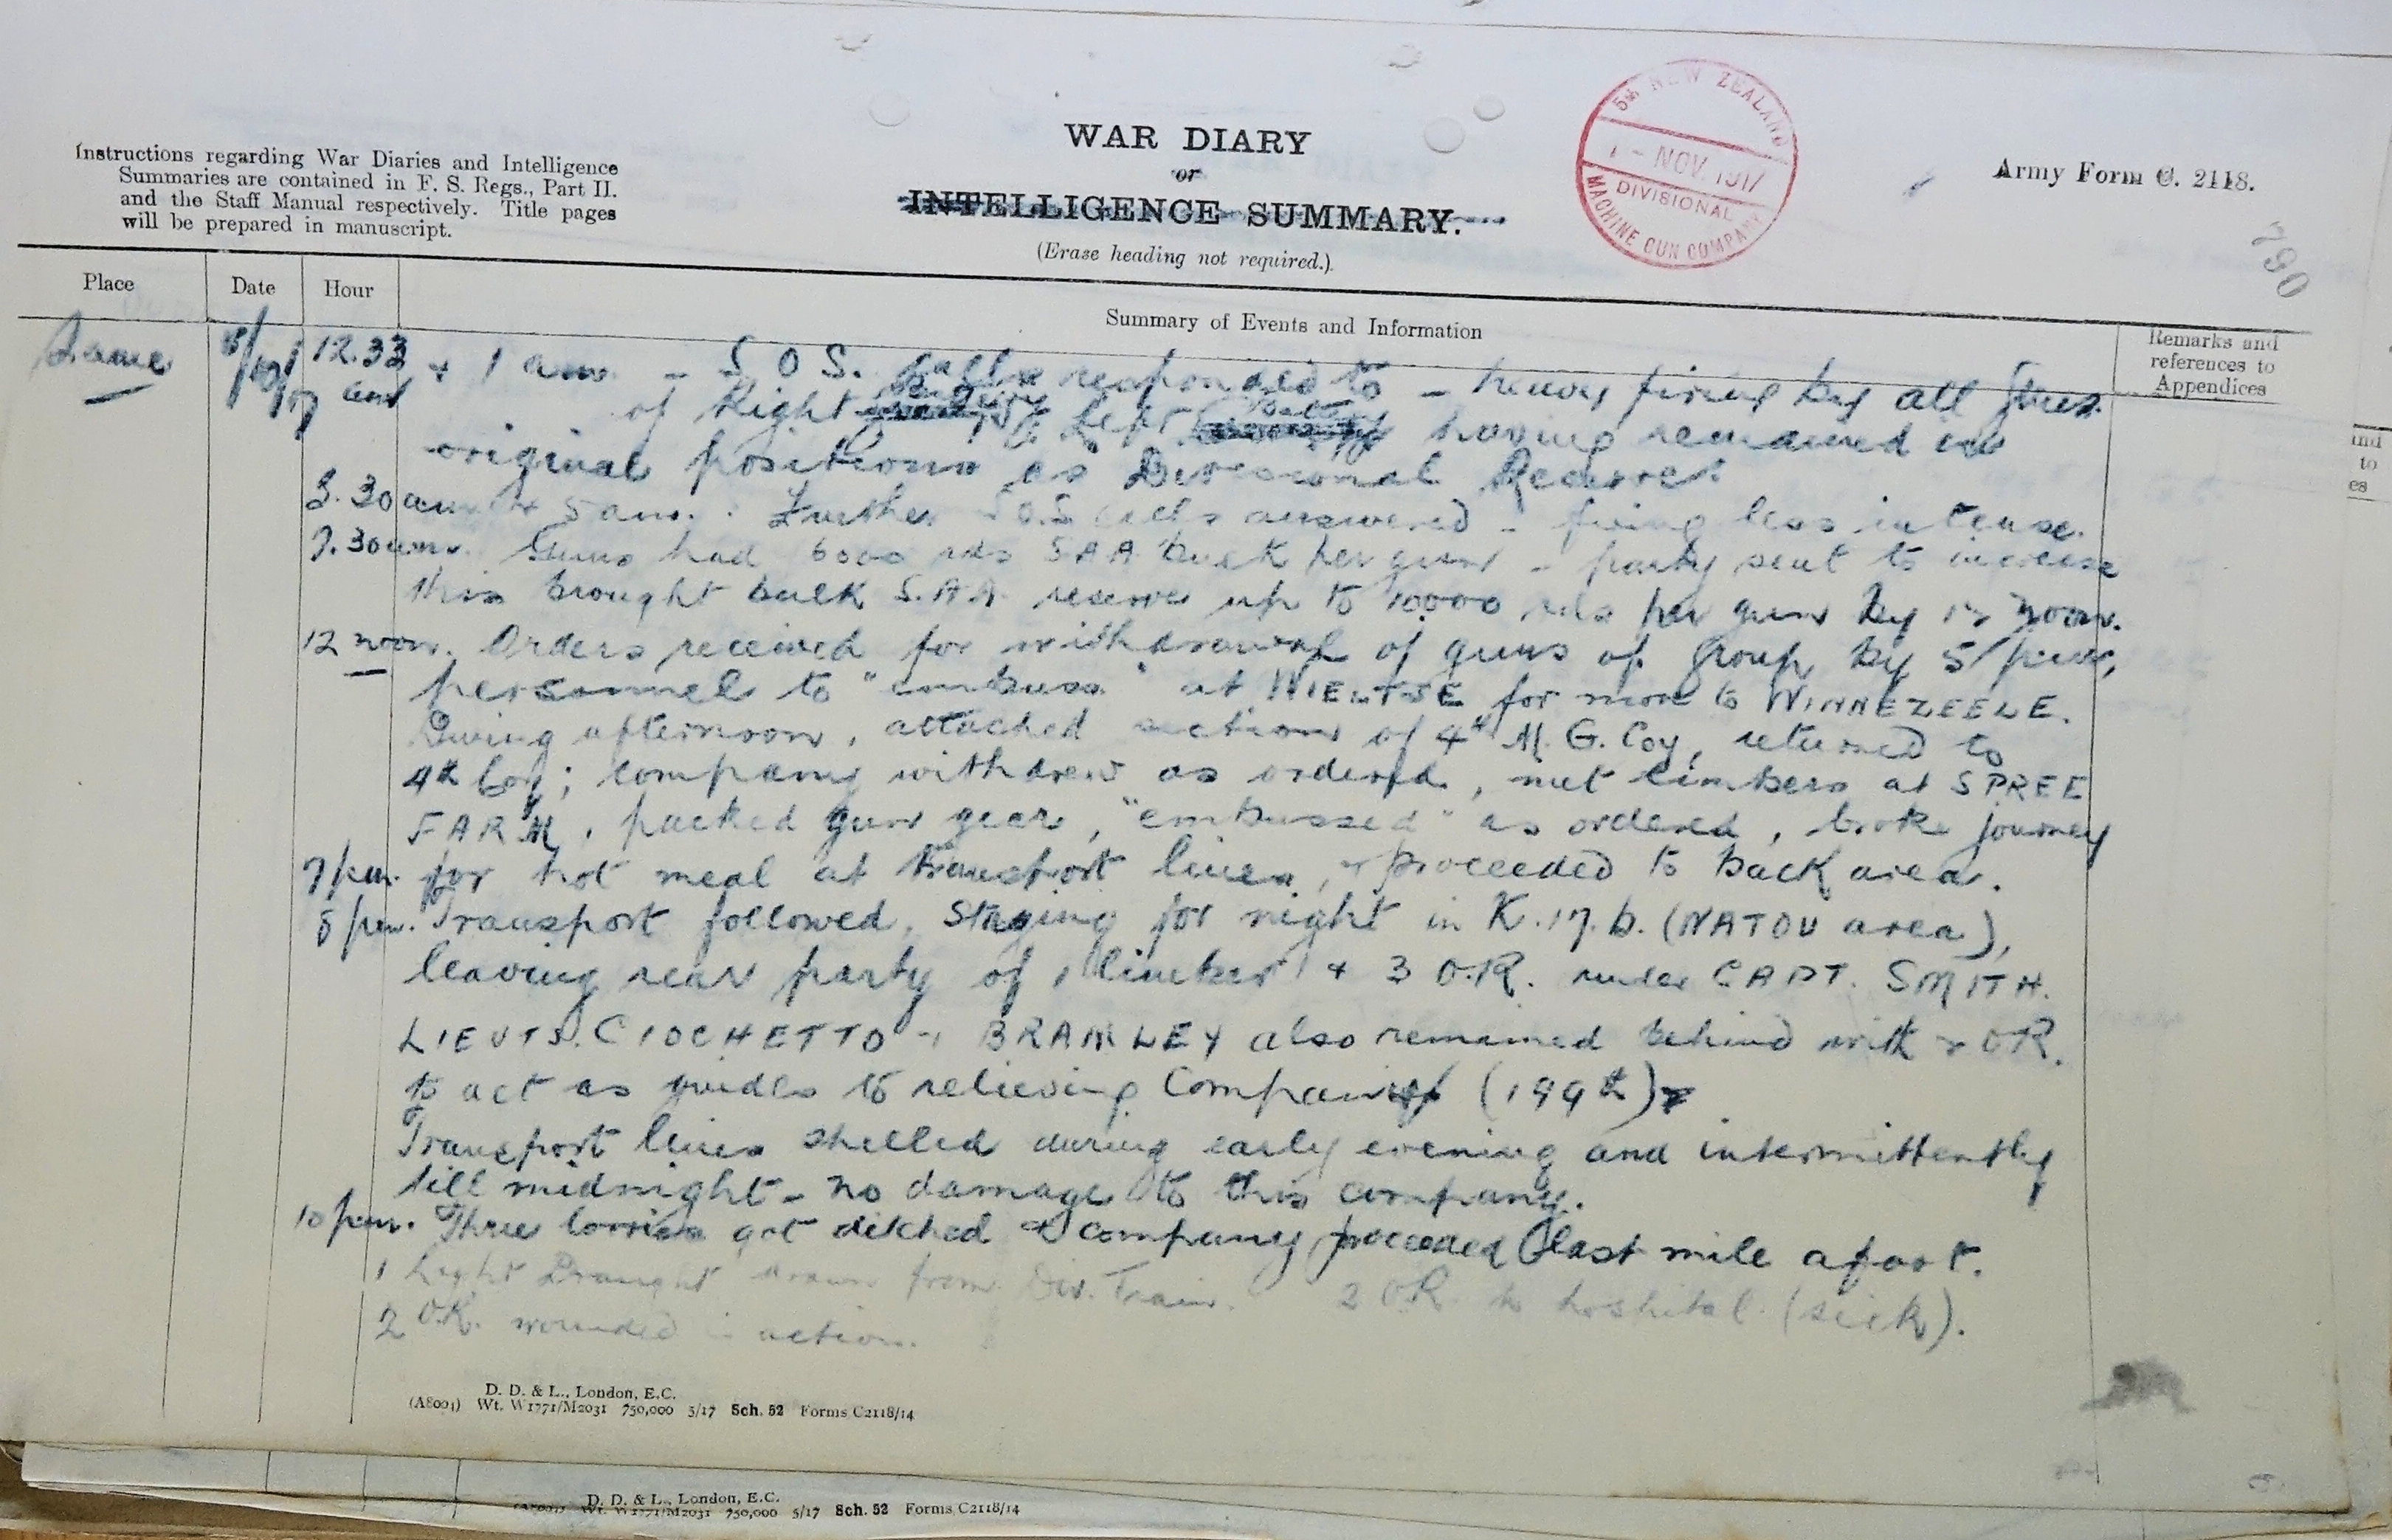 Instructions regarding War Diaries and Intelligence
Summaries are contained in F. S. Regs., Part II.
and the Staff Manual respectively. Title pages
will be prepared in manuscript.
WAR DIARY
or
INTELLIGENCE SUMMARY.
(Erase heading not required.)
5th NEW ZEALAND
1 - NOV. 1917
DIVISIONAL
MACHINE GUN COMPANY
Army Form C. 2118.
790
Place Date Hour
Summary of Events and Information
Remarks and
references to
Appendices
Same /10/17 12.33 am + 1 am. - S O S. calls responded to - heavy firing by all guns
of Right Left having remained in
original positions as Divisional Reserve.
3.30 am + 5 am. Further S.O.S calls answered - firing less intense.
7.30 am. Guns had 6000 rds S A A bulk per gun - party sent to increase
this brought bulk S.A.A. reserve up to 10000 rds per gun by 12 noon.
12 noon. Orders received for withdrawal of guns of Group by 5 pm,
personnel to "embuss" at WIELTJE for move to WINNEZEELE.
During afternoon, attached section of 4th M. G. Coy, returned to
4th Coy; company withdrew as ordered, met limbers at SPREE
FARM, packed gun gear, "embussed" as ordered, broke journey
7 pm. for hot meal at transport lines, + proceeded to back area.
8 pm. Transport followed, staging for night in K.17.b. (NATOU area),
leaving rear party of 1 limber + 3 O.R. under CAPT. SMITH.
LIEUTS. CIOCHETTO + BRAMLEY also remained behind with OR.
to act as guides to relieving Company (199th)
Transport lines shelled during early evening and intermittently
till midnight - no damage to this company.
10 pm. Three lorries got ditched & company proceeded last mile afoot.
1 Light Draught drawn from Div. Train. 2 OR to hospital (sick).
2 O.R. wounded in action.
D. D. & L., London, E.C.
(A8001) Wt. W1771/M2031 750,000 5/17 Sch. 52 Forms C2118/14
D. D. & L., London, E.C.
Wt. W1771/M2031 750,000 5/17 Sch. 52 Forms C2118/14